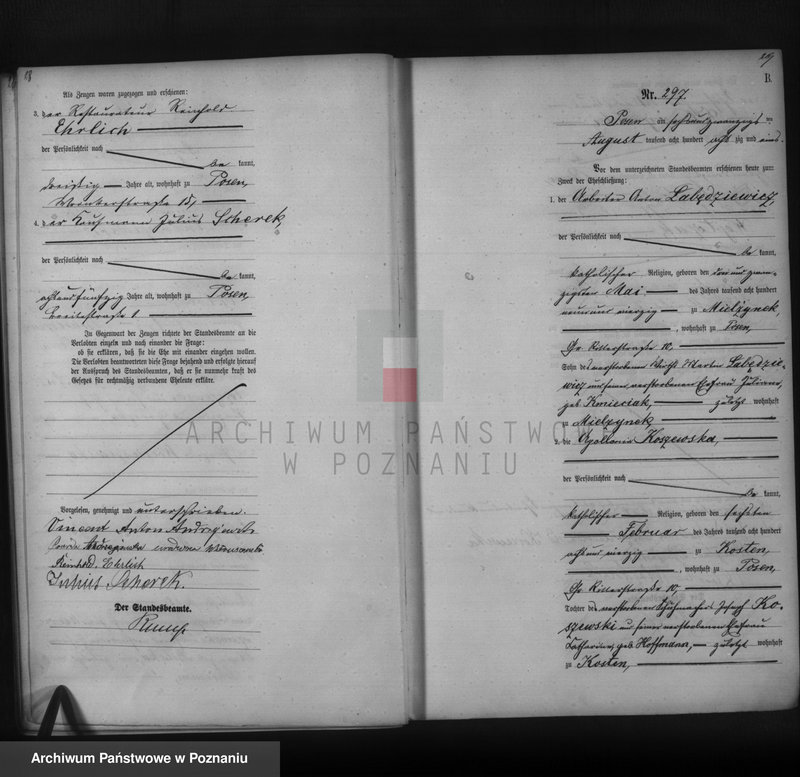 68
Als Zeugen waren zugezogen und erschienen:
3. der Restaurateur Reinhold
Ehrlich
der Persönlichkeit nach
be kannt,
dreißig Jahre alt, wohnhaft zu Posen,
4. der Kaufmann Julius Scherek,
der Persönlichkeit nach
be kannt,
achtundfünfzig Jahre alt, wohnhaft zu Posen
Breitestraße 1
In Gegenwart der Zeugen richtete der Standesbeamte an die
Verlobten einzeln und nach einander die Frage:
ob sie erklären, daß sie die Ehe mit einander eingehen wollen.
Die Verlobten beantworteten diese Frage bejahend und erfolgte hierauf
der Ausspruch des Standesbeamten, daß er sie nunmehr kraft des
Gesetzes für rechtmäßig verbundene Eheleute erkläre.
Vorgelesen, genehmigt und unterschrieben.
Vincent Anton
Reinhold Ehrlich
Julius Scherek.
Der Standesbeamte.
B.
Nr. 297.
Posen am sechsundzwanzigsten
August tausend acht hundert acht zig und eins.
Vor dem unterzeichneten Standesbeamten erschienen heute zum
Zweck der Eheschließung:
1. der Arbeiter Anton Łabędziewicz,
der Persönlichkeit nach
be kannt,
katholischer Religion, geboren den drei und zwan-
zigsten Mai des Jahres tausend acht hundert
neun und vierzig zu Mielżynek,
, wohnhaft zu Posen,
Gr. Ritterstraße 10,
Sohn des verstorbenen Wirth Martin Łabędzie-
wicz und seiner verstorbenen Ehefrau Julianna,
geb. Kmieciak, zuletzt wohnhaft
zu Mielżynek,
2. die Apollonia Koszewska,
der Persönlichkeit nach
be kannt,
katholischer Religion, geboren den sechsten
Februar des Jahres tausend acht hundert
acht und vierzig zu Kosten,
, wohnhaft zu Posen,
Gr. Ritterstraße 10,
Tochter des verstorbenen Schuhmachers Joseph Ko-
szewski und seiner verstorbenen Ehefrau
Catharina, geb. Hoffmann, zuletzt wohnhaft
zu Kosten,
ARCHIWUM PAŃSTWOWE
W POZNANIU
Archiwum Państwowe w Poznaniu